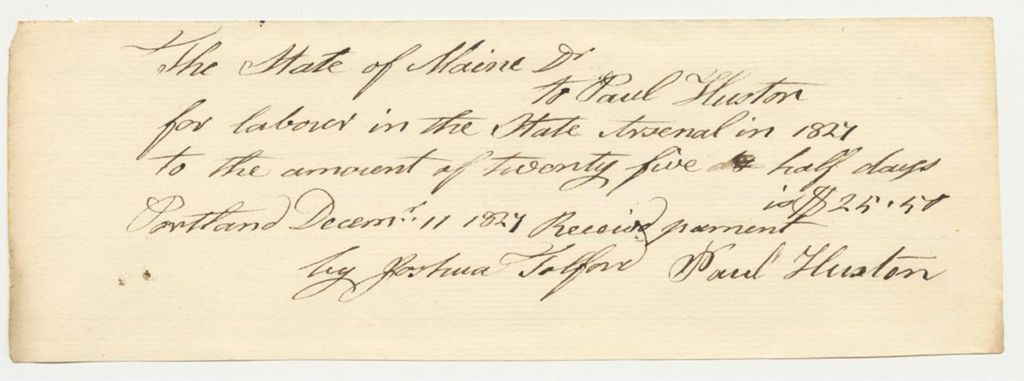 The State of Maine Dr
to Paul Huston
for labour in the State Arsenal in 1827
to the amount of twenty five half days
is $25.50
Portland Decemr. 11 1827 Receivd pament
by Joshua Tolford Paul Huston